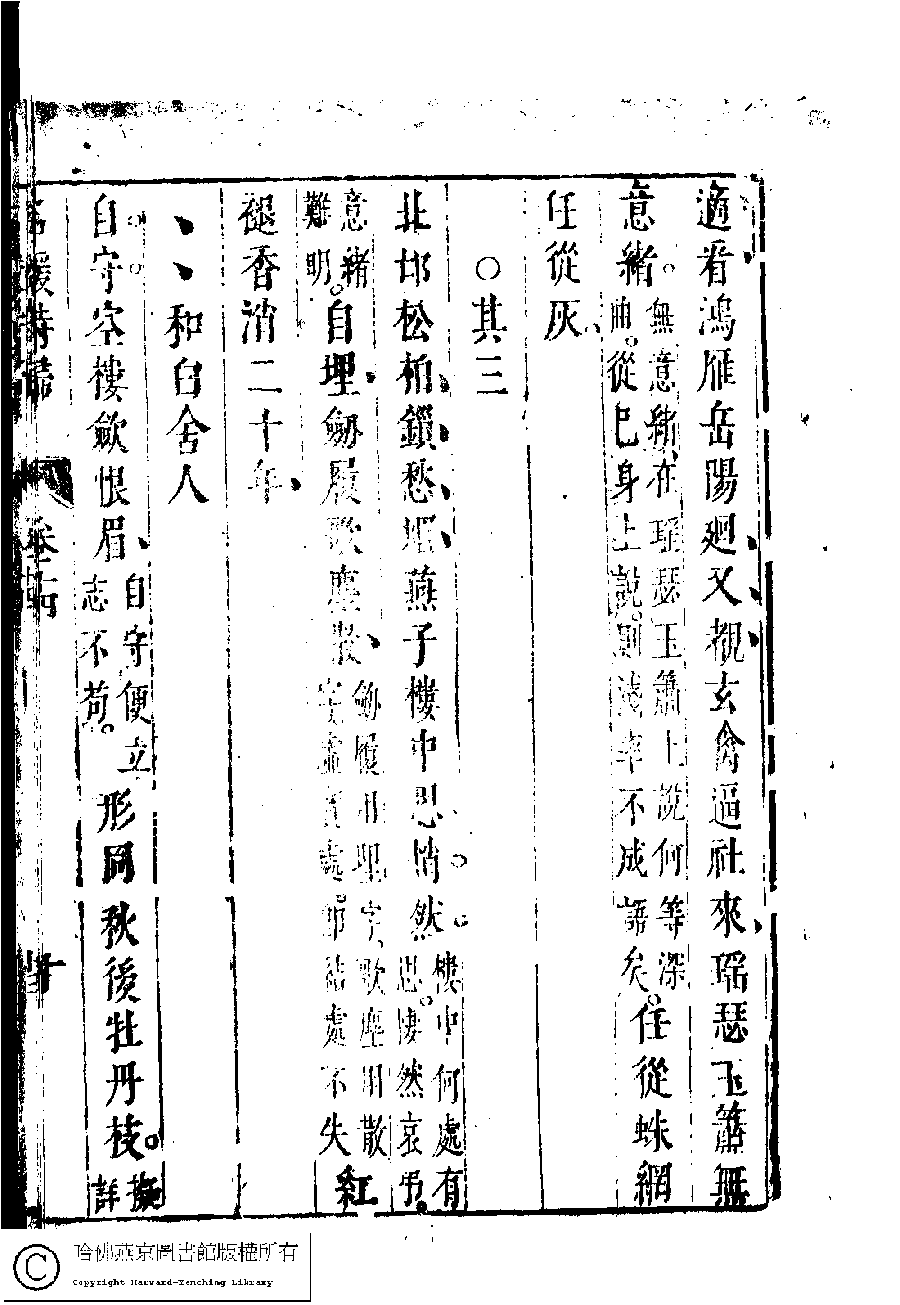 適看鴻雁岳陽廻又覩玄禽逼社來瑶瑟玉簫無
意緒。無意緒在瑶瑟玉簫上說何等深
曲。從已身上說。則淺率不成語矣。任從蛛網
任從灰
○其三
北邙松柏鎖愁煙燕子樓中思悄然樓中何處有
思。悽然哀弔。
意緒
難明。自埋劒履歌塵散劒履用埋字歌塵用散
處 處不失紅
褪香消二十年
、、和白舍人
自守空樓斂恨眉自守便立
志不苟。形同秋後牡丹枝。
名媛詩歸 卷
哈佛燕京圖書館版權所有
Copyright Harvard-Yenching Library